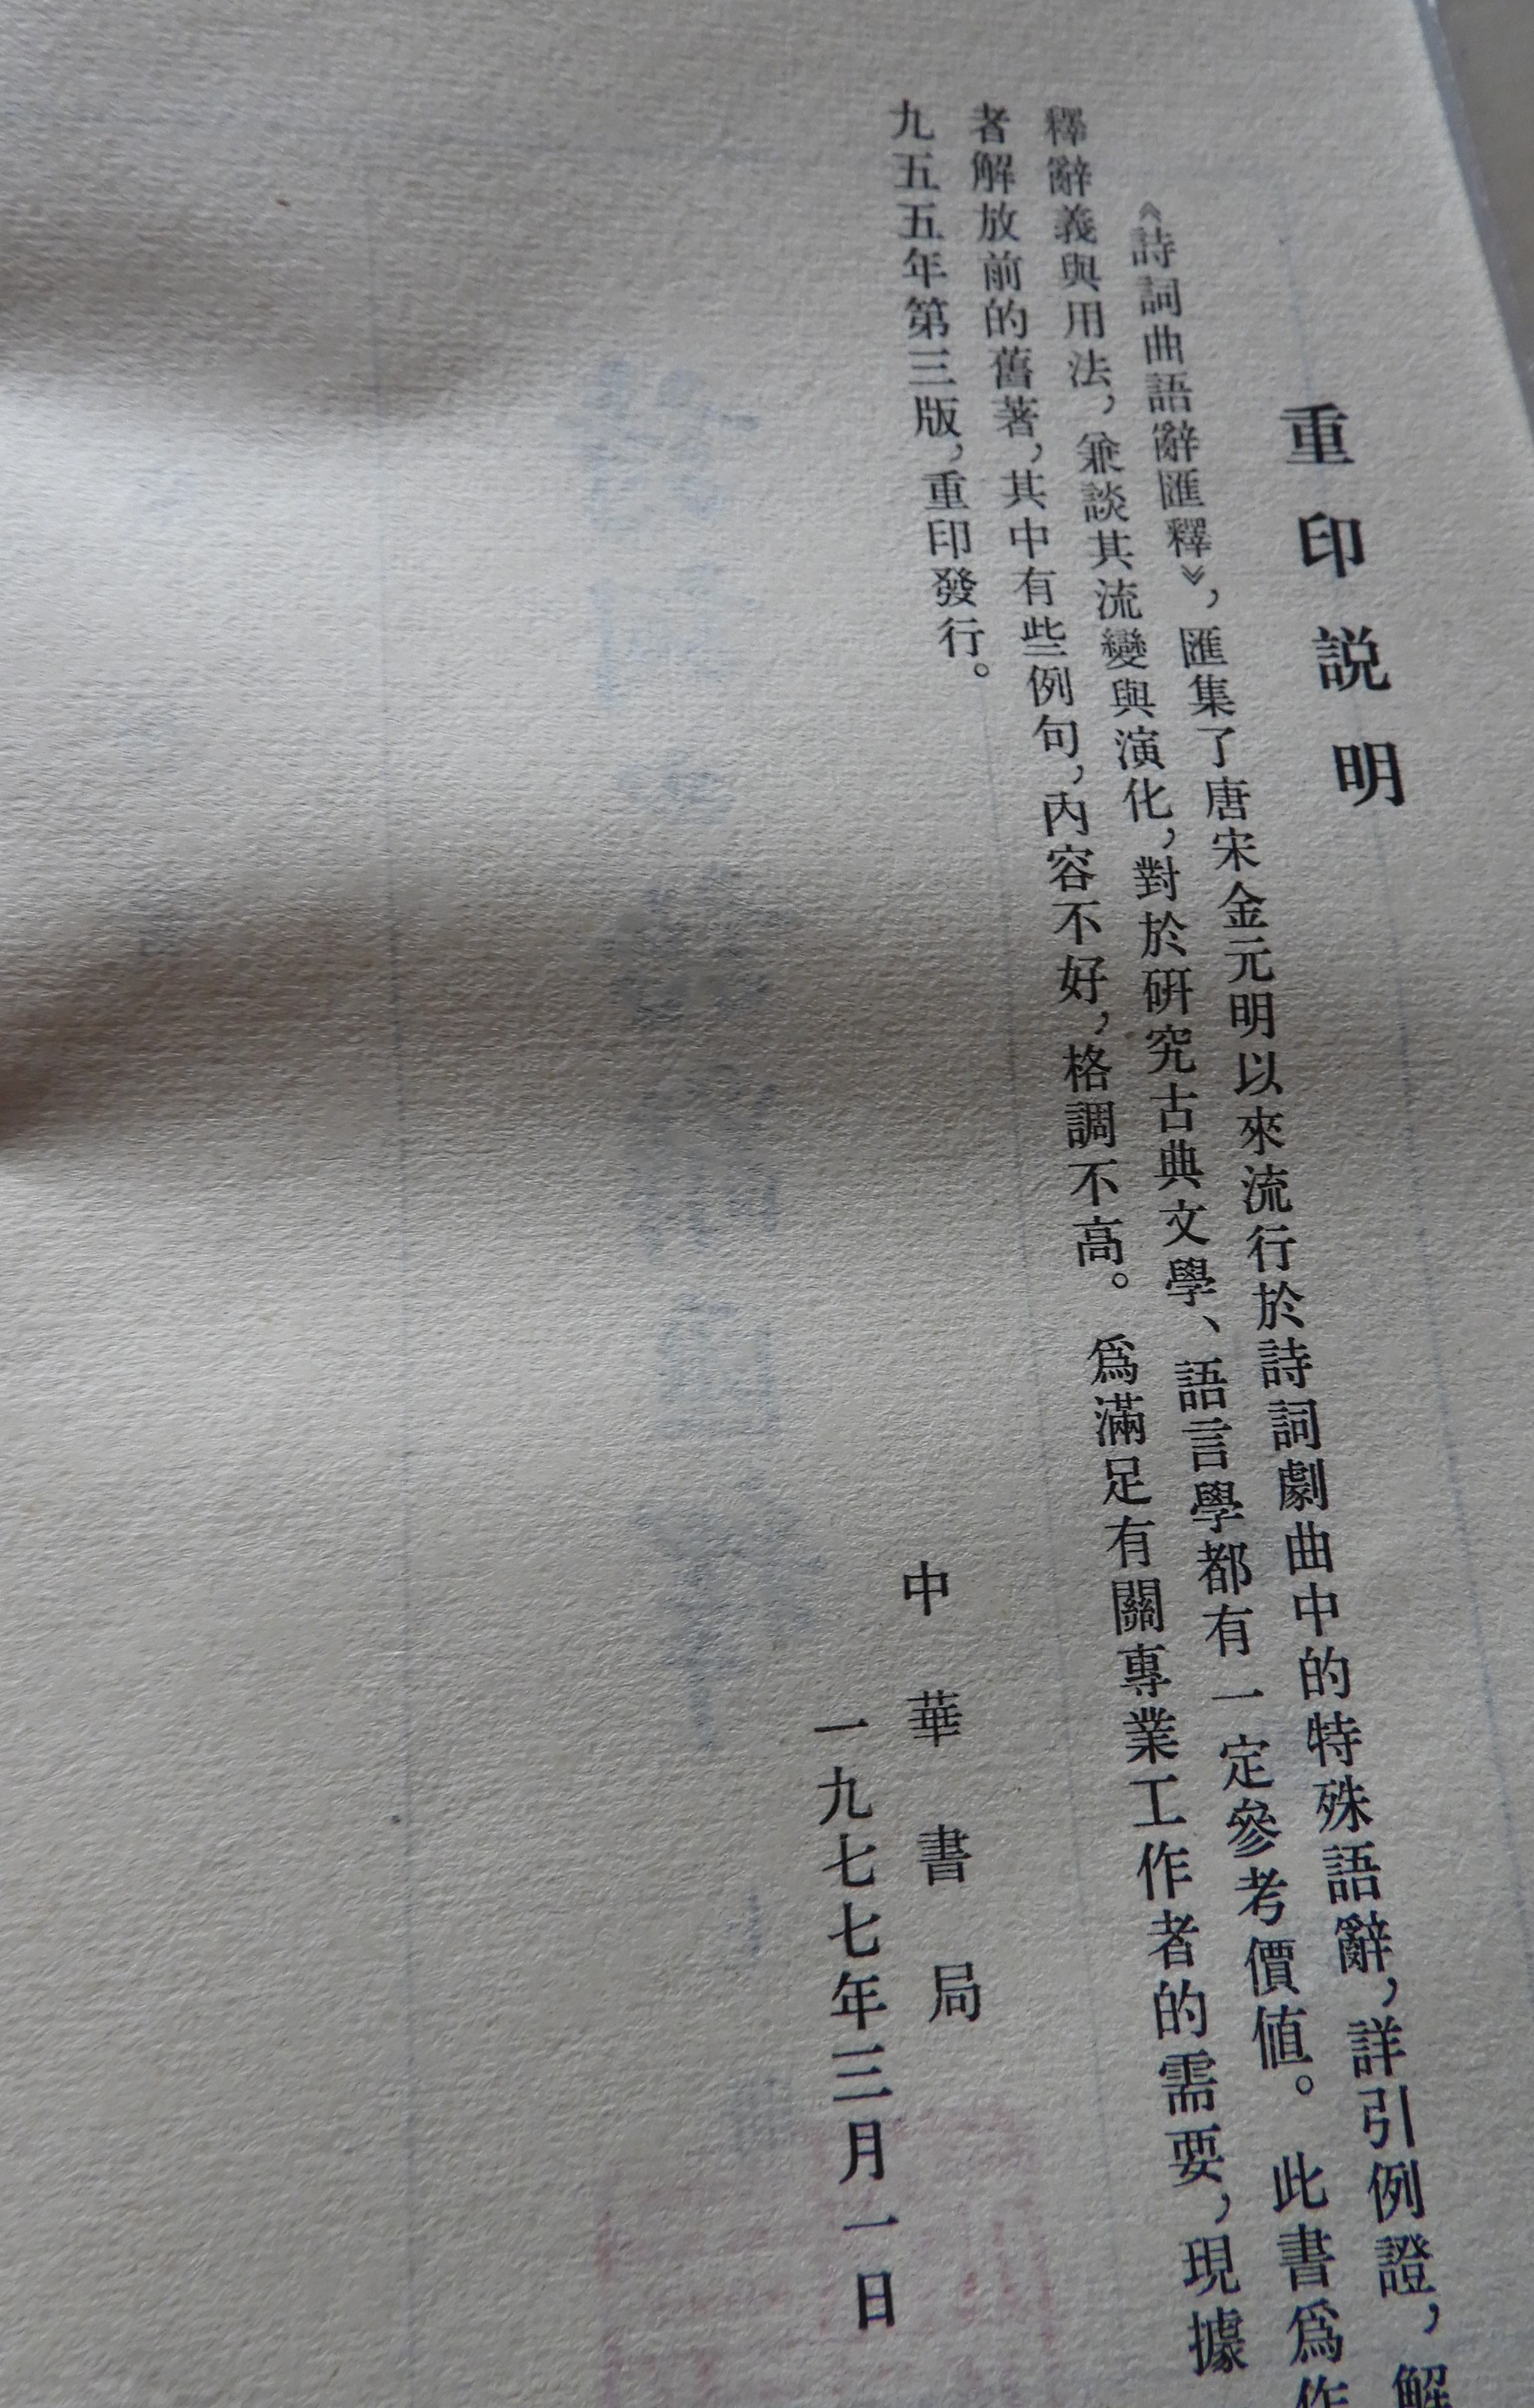 重印説明
《詩詞曲語辭匯釋》，匯集了唐宋金元明以來流行於詩詞劇曲中的特殊語辭，詳引例證，解
釋辭義與用法，兼談其流變與演化，對於研究古典文學、語言學都有一定參考價値。此書爲作
者解放前的舊著，其中有些例句，內容不好，格調不高。爲滿足有關專業工作者的需要，現據
九五五年第三版，重印發行。
中華書局
一九七七年三月一日